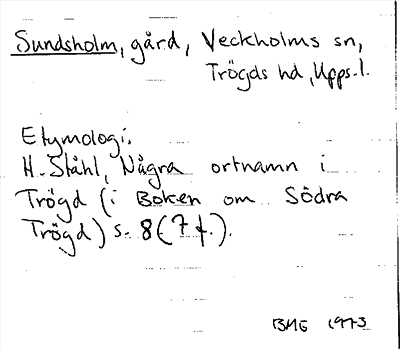 Sundsholm, gård, Veckholms sn,
Trögds hd, Upps. l.
Etymologi.
H. Ståhl, Några ortnamn i
Trögd (i Boken om Södra
Trögd) s. 8 (7 f.).
BMG 1973